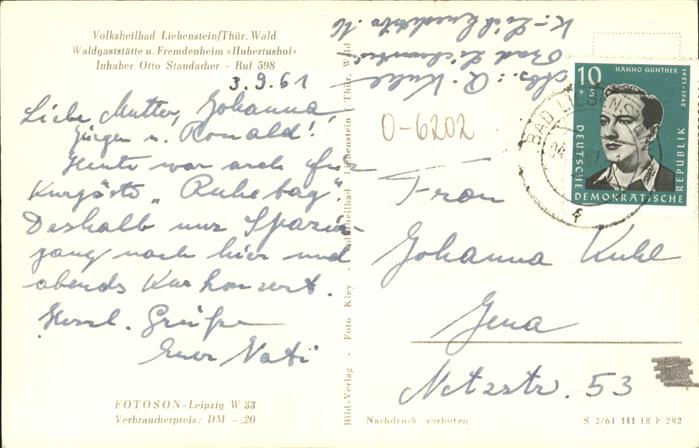 Volksheilbad Liebenstein/Thür. Wald
Waldgaststätte u. Fremdenheim «Hubertushof»
Inhaber Otto Staudacher - Ruf 598
3.9.61
Liebe Mutter, Johanna,
Jürgen u. Ronald!
Heute war auch für
Kurgäste „Ruhetag".
Deshalb nur Spazier-
gang nach hier und
abends Kurkonzert.
Herzl. Grüße
Euer Vati
FOTOSON-Leipzig W 33
Verbraucherpreis: DM -,20
Bild-Verlag - Foto Kley - Volksheilbad Liebenstein / Thür. Wald
Abs.: A. Kuhl
Bad Liebenstein
K.-Liebknechtstr. 16
0-6202
10
+5
HANNO GÜNTHER
1921-1942
DEUTSCHE
DEMOKRATISCHE
REPUBLIK
BAD LIEBENSTEIN
Frau
Johanna Kuhl
Jena
Netzstr. 53
Nachdruck verboten
S 2/61 III 18 F 282